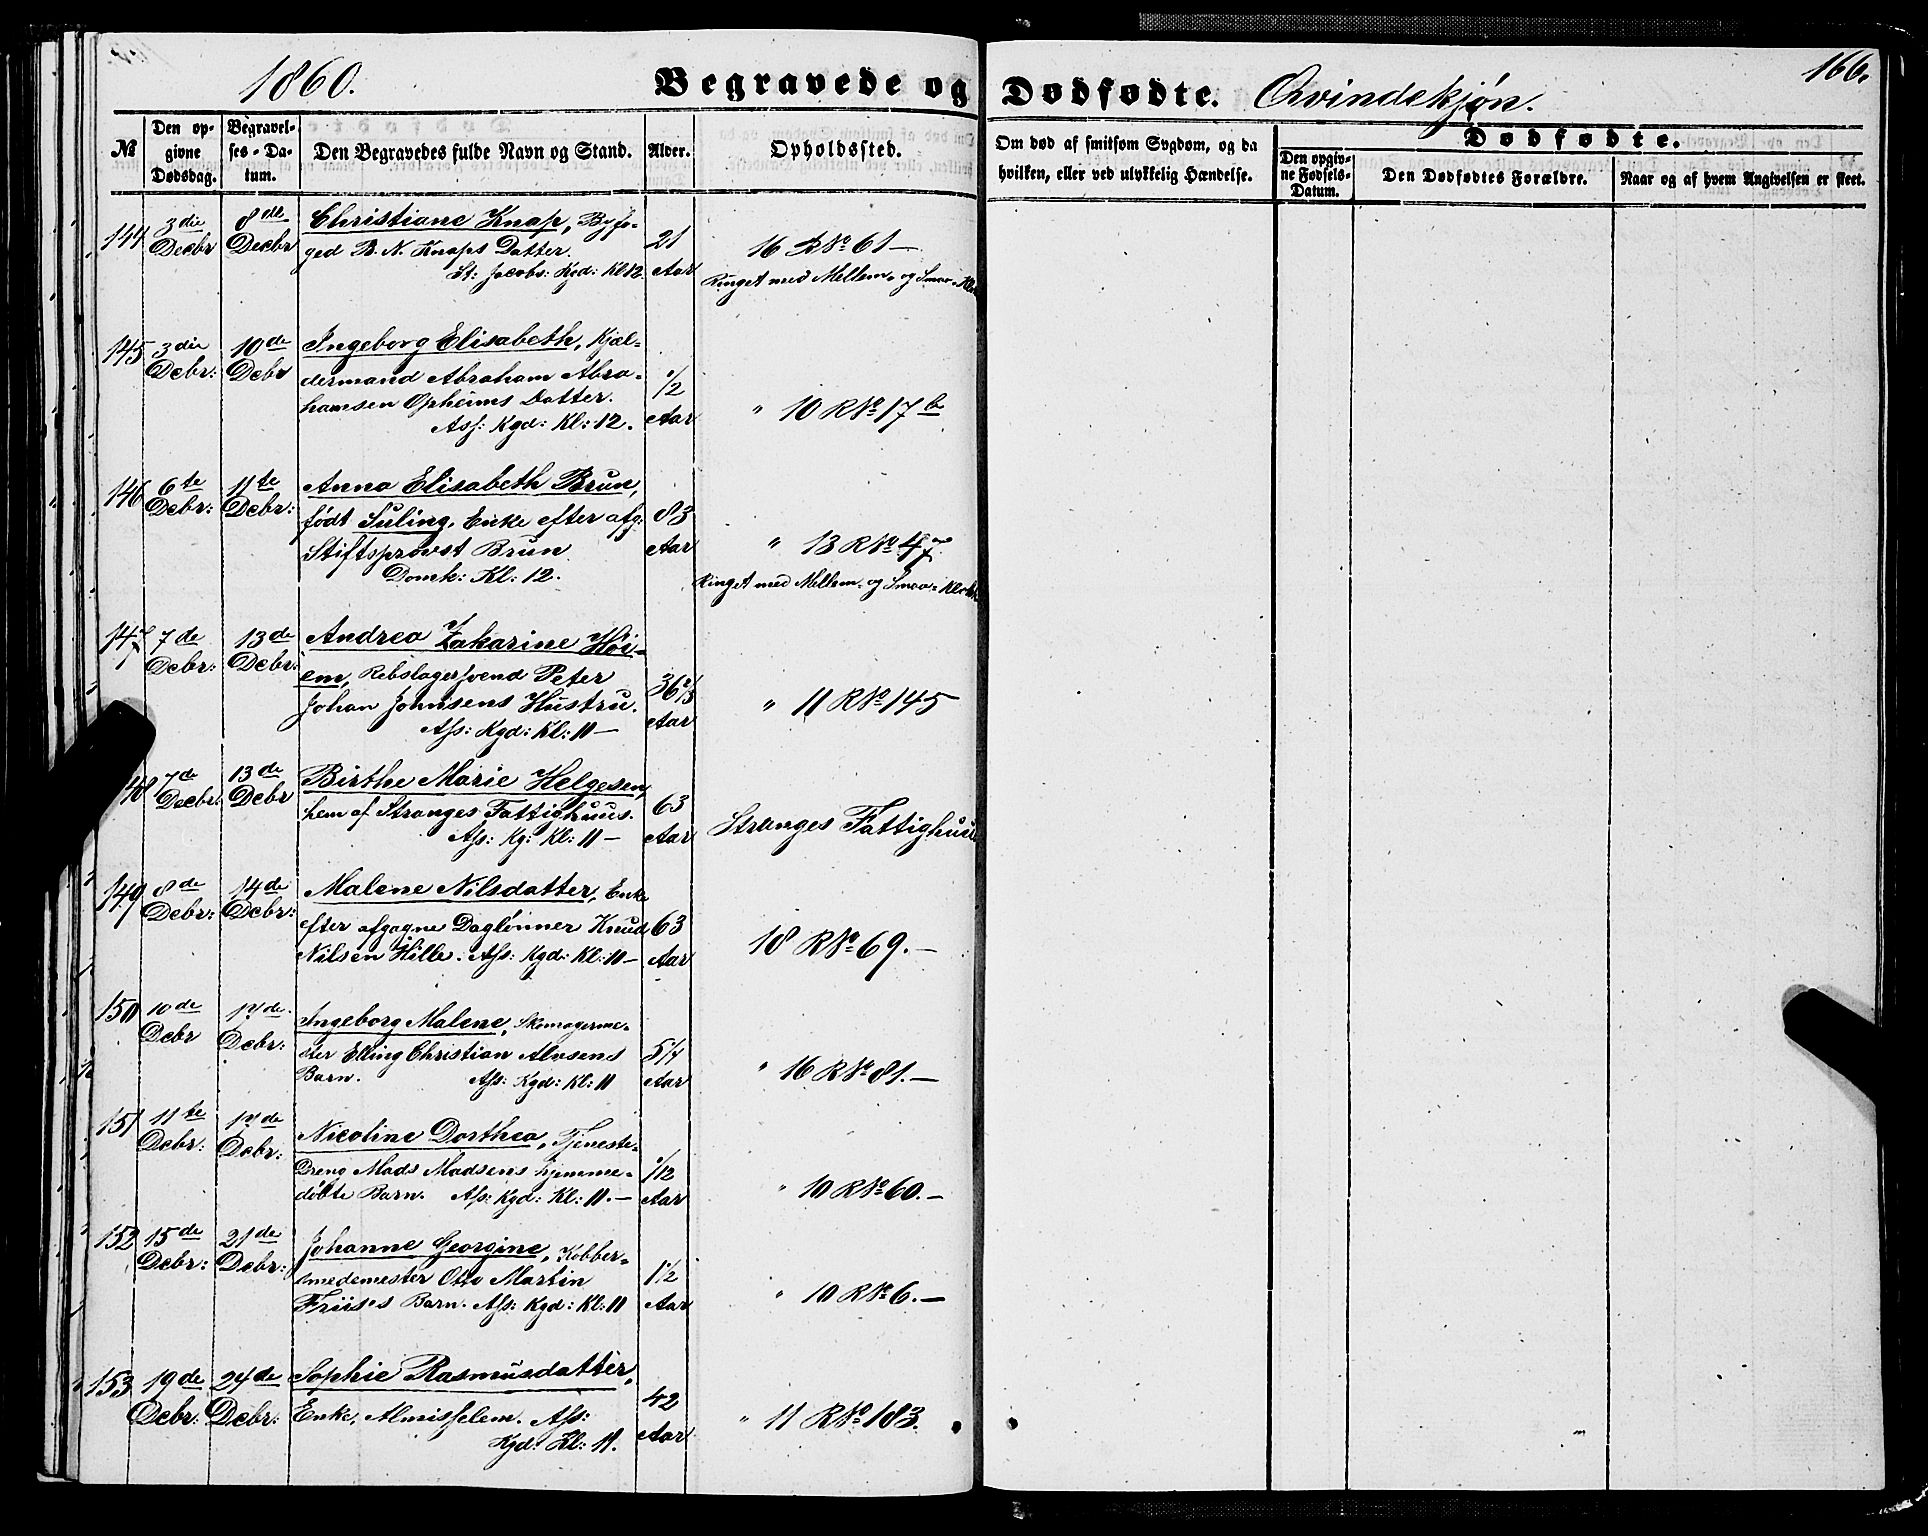 1860.
Begravede og Dødfødte. Qvindekjøn.
166.
№
Den opgivne Dødsdag.
Begravelses-Datum.
Den Begravedes fulde Navn og Stand.
Alder.
Opholdssted.
Om død af smitsom Sygdom, og da hvilken, eller ved ulykkelig Hændelse.
Dødfødte.
Den opgivne Fødsels-Datum.
Den Dødfødtes Forældre.
Naar og af hvem Angivelsen er skeet.
144 3die Decbr 8de Decbr Christiane Knap, Byfo-
ged B. N. Knaps Datter. 21 Aar 16 R№ 61 —
St: Jacobs: Kgd: Kl 12. Ringet med Mellem- og Smaa-
145 3die Debr: 10de Debr Ingeborg Elisabeth, Kjæl-
dermand Abraham Abra- 1/2 Aar
hamsen Opheims Datter. " 10 R№ 17 b
Ass: Kgd: Kl: 12.
146 6te Debr: 11te Debr: Anna Elisabeth Brun,
født Suling, Enke efter afg: 83 Aar
Stiftsprovst Brun " 13 R№ 47
Domk: Kl: 12. Ringet med Mellem- og Smaa-
147 7de Debr: 13de Debr: Andrea Zakarine Höi-
em, Rebslagersvend Peter
Johan Johnsens Hustru. 36 2/3 Aar " 11 R№ 145
Ass: Kgd: Kl: 11 —
148 7de Decbr. 13de Debr Birthe Marie Helgesen,
Lem af Stranges Fattighuus. 63 Aar Stranges Fattighuus
Ass: Kg: Kl: 11 —
149 8de Debr: 14de Debr: Malene Nilsdatter, Enke
efter afgagne Daglønner Knud 63 Aar
Nilsen Hille. Ass: Kgd: Kl: 11 — 18 R№ 69. —
150 10de Debr Debr: Ingeborg Malene, Skomagerme-
ster Elling Christian Alvsens 5 1/4 Aar " 16 R№ 81. —
Barn. Ass: Kgd: Kl: 11
151 11te Debr: Debr: Nicoline Dorthea, Tjeneste-
Dreng Mads Madsens hjemme- 1/12 Aar
døbte Barn. Ass: Kgd: Kl: 11. — " 10 R№ 60. —
152 15de Debr: 21de Debr: Johanne Georgine, Kobber-
smedemester Otto Martin 1 1/2 Aar
Friis's Barn. Ass: Kgd: Kl: 11 " 10 R№ 6. —
153 19de Debr: 24de Debr: Sophie Rasmusdatter,
Enke, Almisselem. Ass: 42 Aar " 11 R№ 183.
Kgd: Kl: 11.